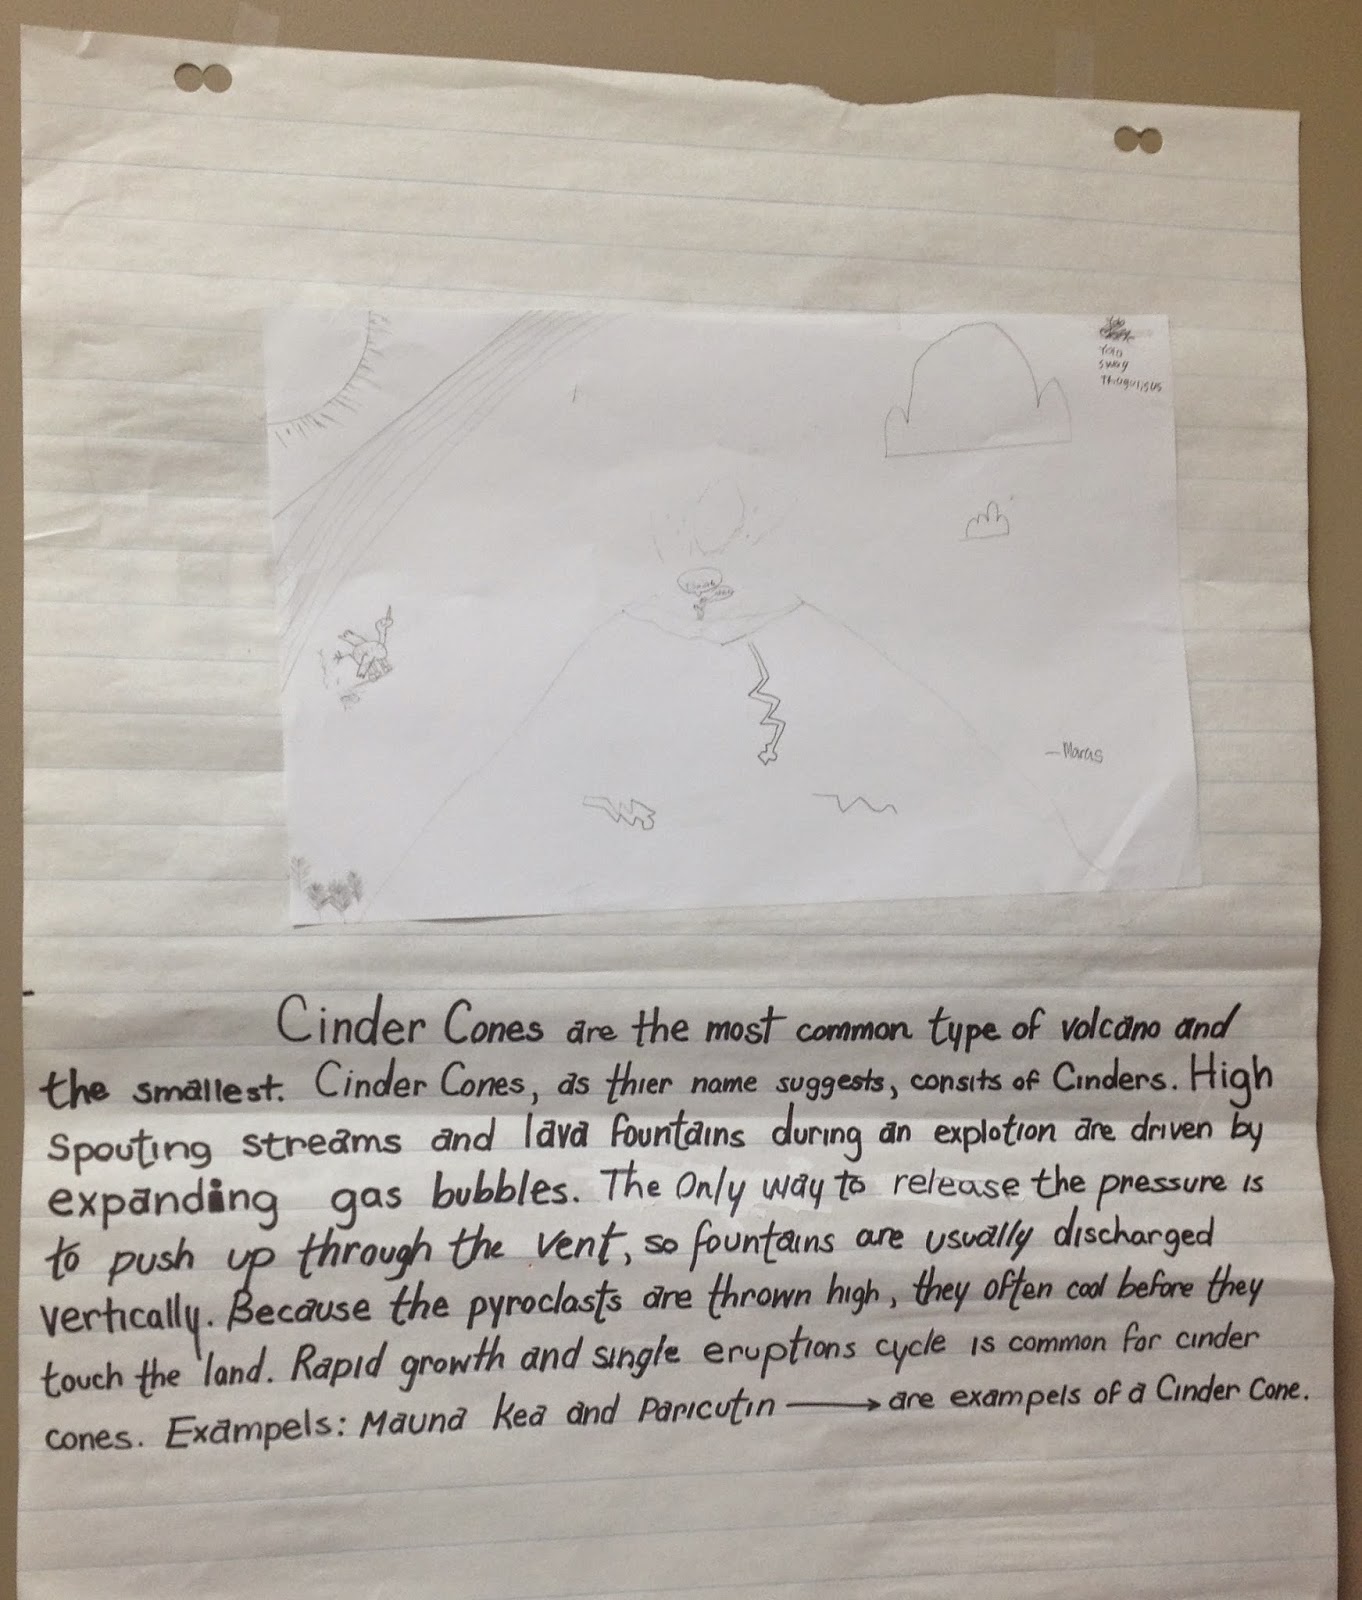 Yolo
Swag
– Marcus
Cinder Cones are the most common type of volcano and
the smallest. Cinder Cones, as thier name suggests, consits of Cinders. High
Spouting streams and lava fountains during an explotion are driven by
expanding gas bubbles. The Only way to release the pressure is
to push up through the vent, so fountains are usually discharged
vertically. Because the pyroclasts are thrown high, they often cool before they
touch the land. Rapid growth and single eruptions cycle is common for cinder
cones. Exampels: Mauna Kea and Paricutin ⟶ are exampels of a Cinder Cone.